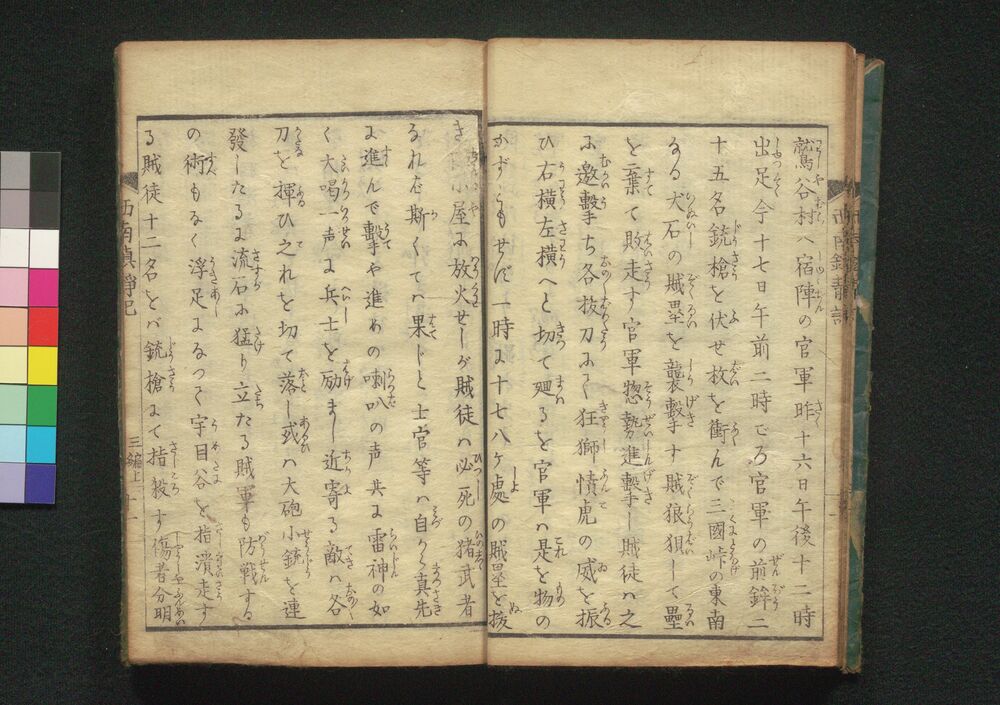 鷲谷村ハ宿陣の官軍昨十六日午後十二時
出足今十七日午前二時ごろ官軍の前鉾二
十五名銃槍を伏せ枚を衝んで三國峠の東南
なる犬石の賊塁を襲撃す賊狼狽して壘
を棄て敗走す官軍惣勢進撃し賊徒ハ之
に邀撃ち各抜刀にて狂獅憤虎の威を振
ひ右横左横へと切て廻るを官軍ハ是を物の
かずともせず一時に十七八ヶ處の賊塁を抜
き小屋に放火せしが賊徒ハ必死の猪武者
なれば斯くてハ果じと士官等ハ自から真先
に進んで撃や進めの喇叭の声共に雷神の如
く大喝一声に兵士を励まし近寄る敵ハ各
刀を揮ひ之れを切て落し或ハ大砲小銃を連
發したるに流石に猛り立たる賊軍も防戦する
の術もなく浮足になつて宇目谷を指潰走す
る賊徒十二名をバ銃槍にて指殺す傷者分明
西南鎮静記
三編上
十一